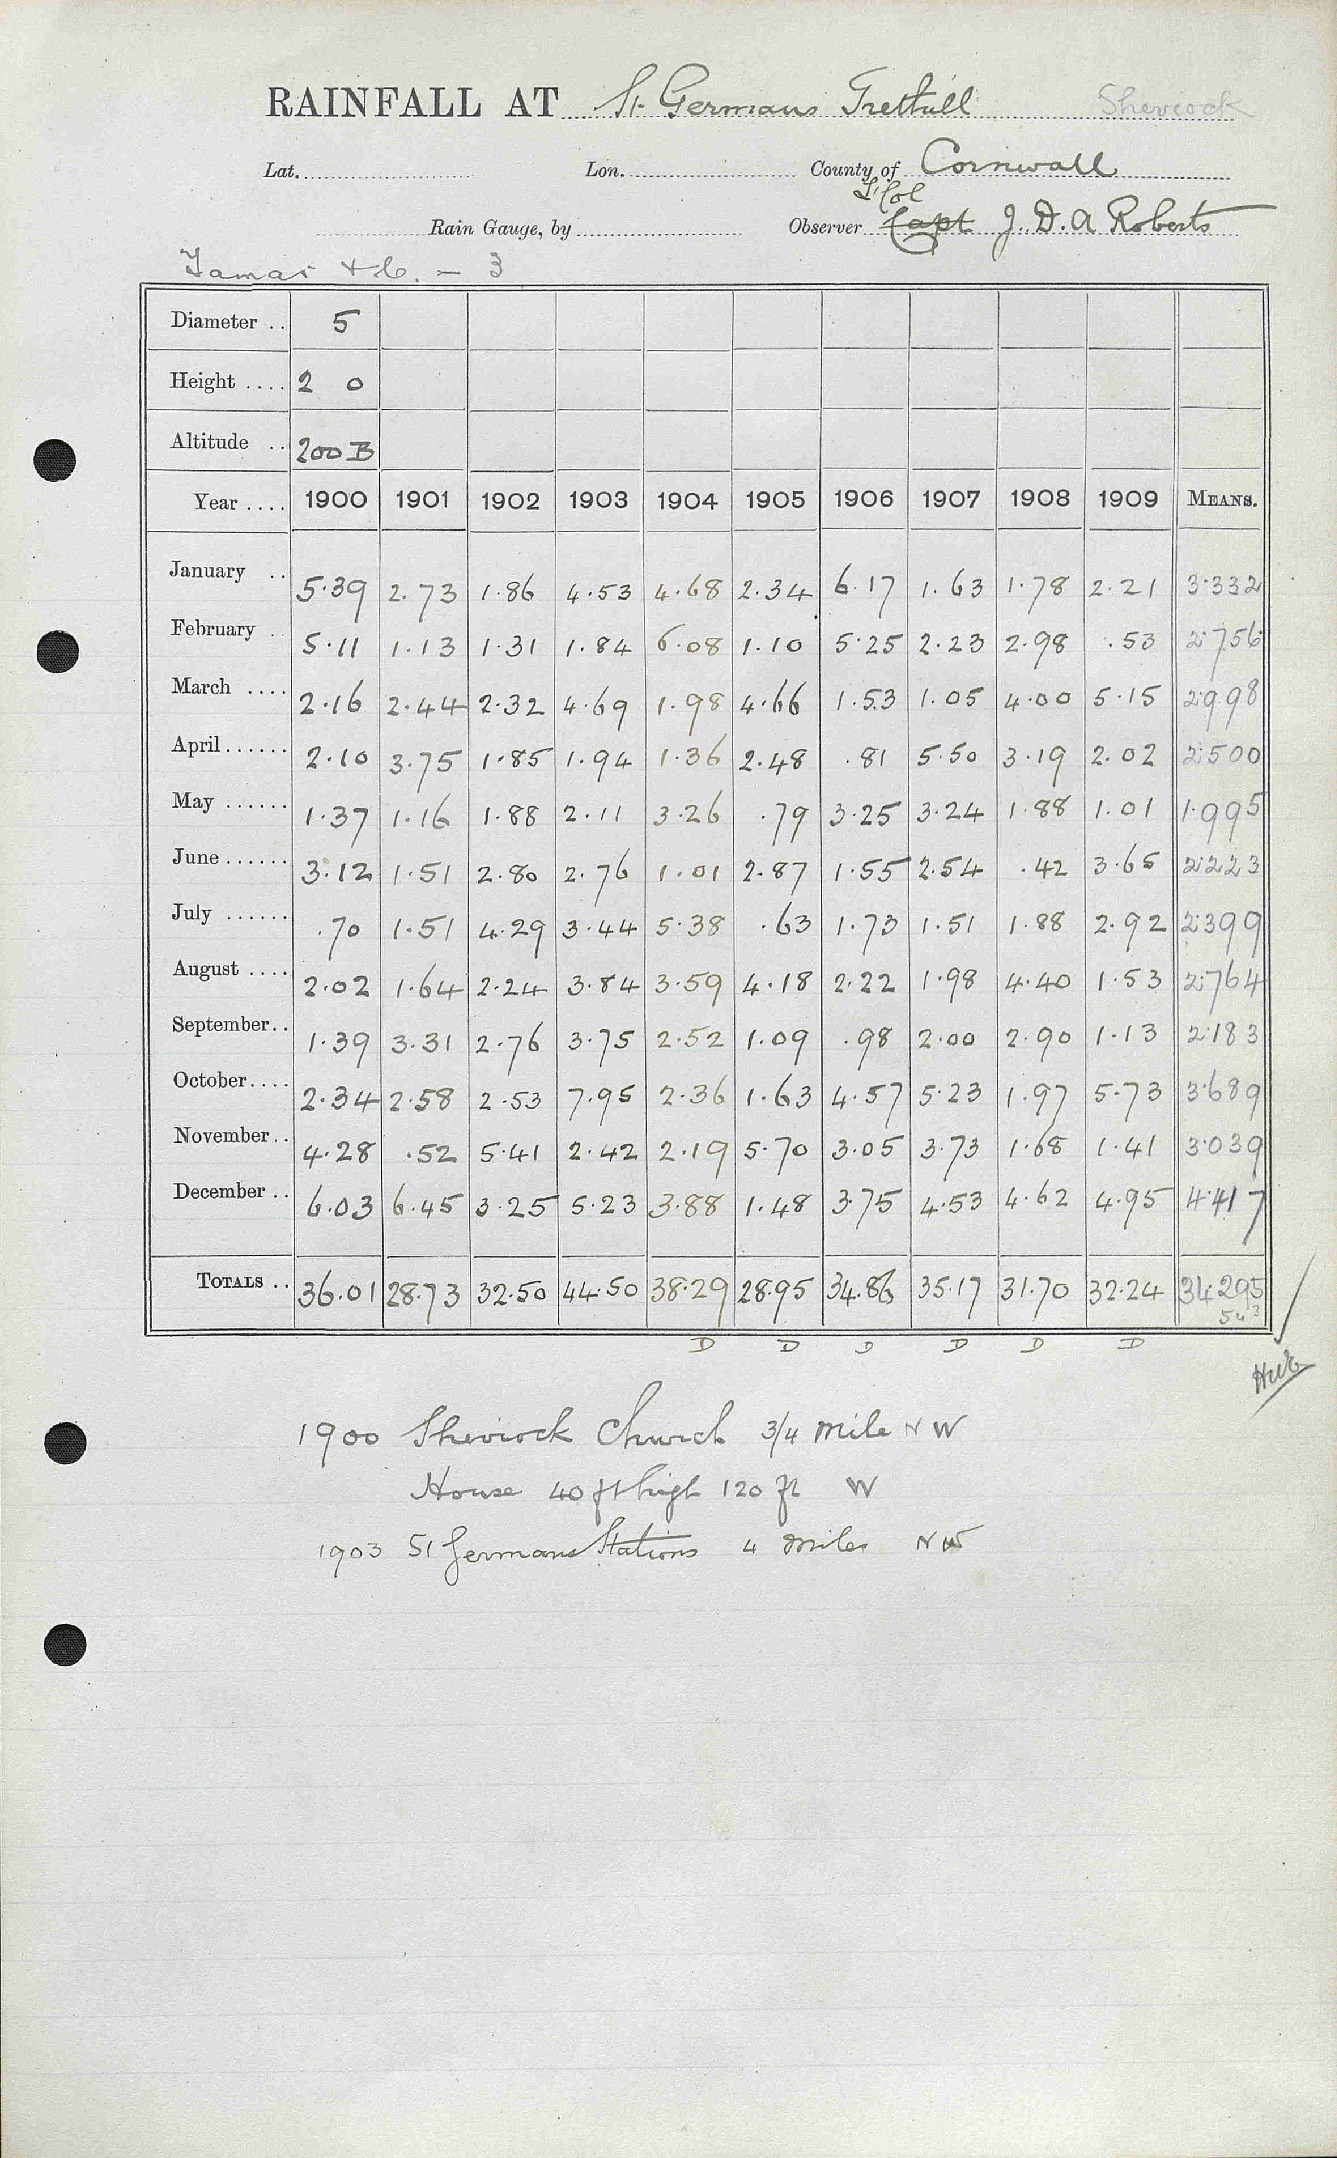 RAINFALL AT St Germans Trethill Sheviock
Lat. Lon. County of Cornwall
Lt Col
Rain Gauge, by Observer Capt J. D. A Roberts
Tamar &c. - 3
Diameter .. 5
Height .... 2 0
Altitude .. 200 B
Year .... 1900 1901 1902 1903 1904 1905 1906 1907 1908 1909 MEANS.
January .. 5.39 2.73 1.86 4.53 4.68 2.34 6.17 1.63 1.78 2.21 3.332
February .. 5.11 1.13 1.31 1.84 6.08 1.10 5.25 2.23 2.98 .53 2.756
March .... 2.16 2.44 2.32 4.69 1.98 4.66 1.53 1.05 4.00 5.15 2.998
April ...... 2.10 3.75 1.85 1.94 1.36 2.48 .81 5.50 3.19 2.02 2.500
May ...... 1.37 1.16 1.88 2.11 3.26 .79 3.25 3.24 1.88 1.01 1.995
June ...... 3.12 1.51 2.80 2.76 1.01 2.87 1.55 2.54 .42 3.65 2.223
July ...... .70 1.51 4.29 3.44 5.38 .63 1.73 1.51 1.88 2.92 2.399
August .... 2.02 1.64 2.24 3.84 3.59 4.18 2.22 1.98 4.40 1.53 2.764
September .. 1.39 3.31 2.76 3.75 2.52 1.09 .98 2.00 2.90 1.13 2.183
October .... 2.34 2.58 2.53 7.95 2.36 1.63 4.57 5.23 1.97 5.73 3.689
November .. 4.28 .52 5.41 2.42 2.19 5.70 3.05 3.73 1.68 1.41 3.039
December .. 6.03 6.45 3.25 5.23 3.88 1.48 3.75 4.53 4.62 4.95 4.417
TOTALS .. 36.01 28.73 32.50 44.50 38.29 28.95 34.86 35.17 31.70 32.24 34.295
D D D D D D
1900 Sheviock Church 3/4 mile NW
House 40 ft high 120 ft W
1903 St Germans Stations 4 miles NW